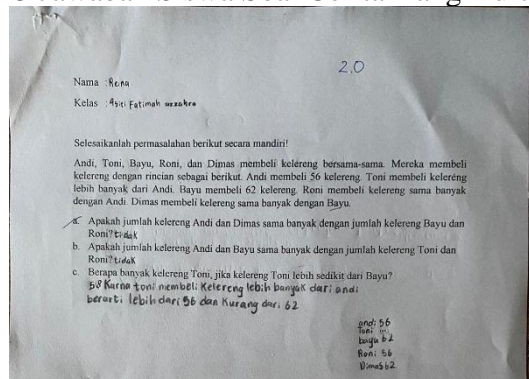 2,0
Nama : Reina
Kelas : 4siti Fatimah azzahra
Selesaikanlah permasalahan berikut secara mandiri!
Andi, Toni, Bayu, Roni, dan Dimas membeli kelereng bersama-sama. Mereka membeli
kelereng dengan rincian sebagai berikut. Andi membeli 56 kelereng. Toni membeli kelereng
lebih banyak dari Andi. Bayu membeli 62 kelereng. Roni membeli kelereng sama banyak
dengan Andi. Dimas membeli kelereng sama banyak dengan Bayu.
a. Apakah jumlah kelereng Andi dan Dimas sama banyak dengan jumlah kelereng Bayu dan
Roni? tidak
b. Apakah jumlah kelereng Andi dan Bayu sama banyak dengan jumlah kelereng Toni dan
Roni? tidak
c. Berapa banyak kelereng Toni, jika kelereng Toni lebih sedikit dari Bayu?
58 Karna toni membeli Kelereng lebih banyak dari andi
berarti lebih dari 56 dan Kurang dari 62
andi 56
Toni
bayu 62
Roni 56
Dimas 62